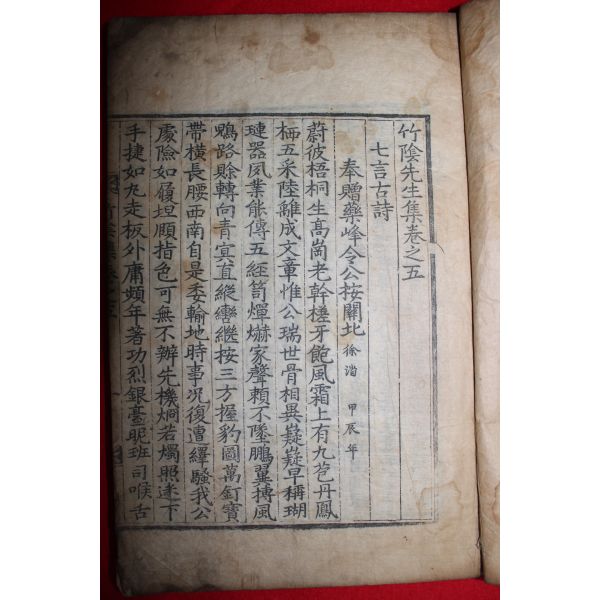 竹陰先生集卷之五
七言古詩
奉贈藥峰令公按關北 徐渻 甲辰年
蔚彼梧桐生高崗老幹槎牙飽風霜上有九苞丹鳳
栖五采陸離成文章惟公瑞世骨相異嶷嶷早稱瑚
璉器夙業能傳五經笥燀爀家聲賴不墜鵬翼搏風
鵾路賒轉向青冥直縱轡繼按三方握豹圖萬釘寶
帶橫長腰西南自是委輸地時事況復遭繹騷我公
處險如履坦頤指色可無不辦先機炯若燭照迷下
手捷如丸走板外庸頻年著功烈銀臺昵班司喉舌